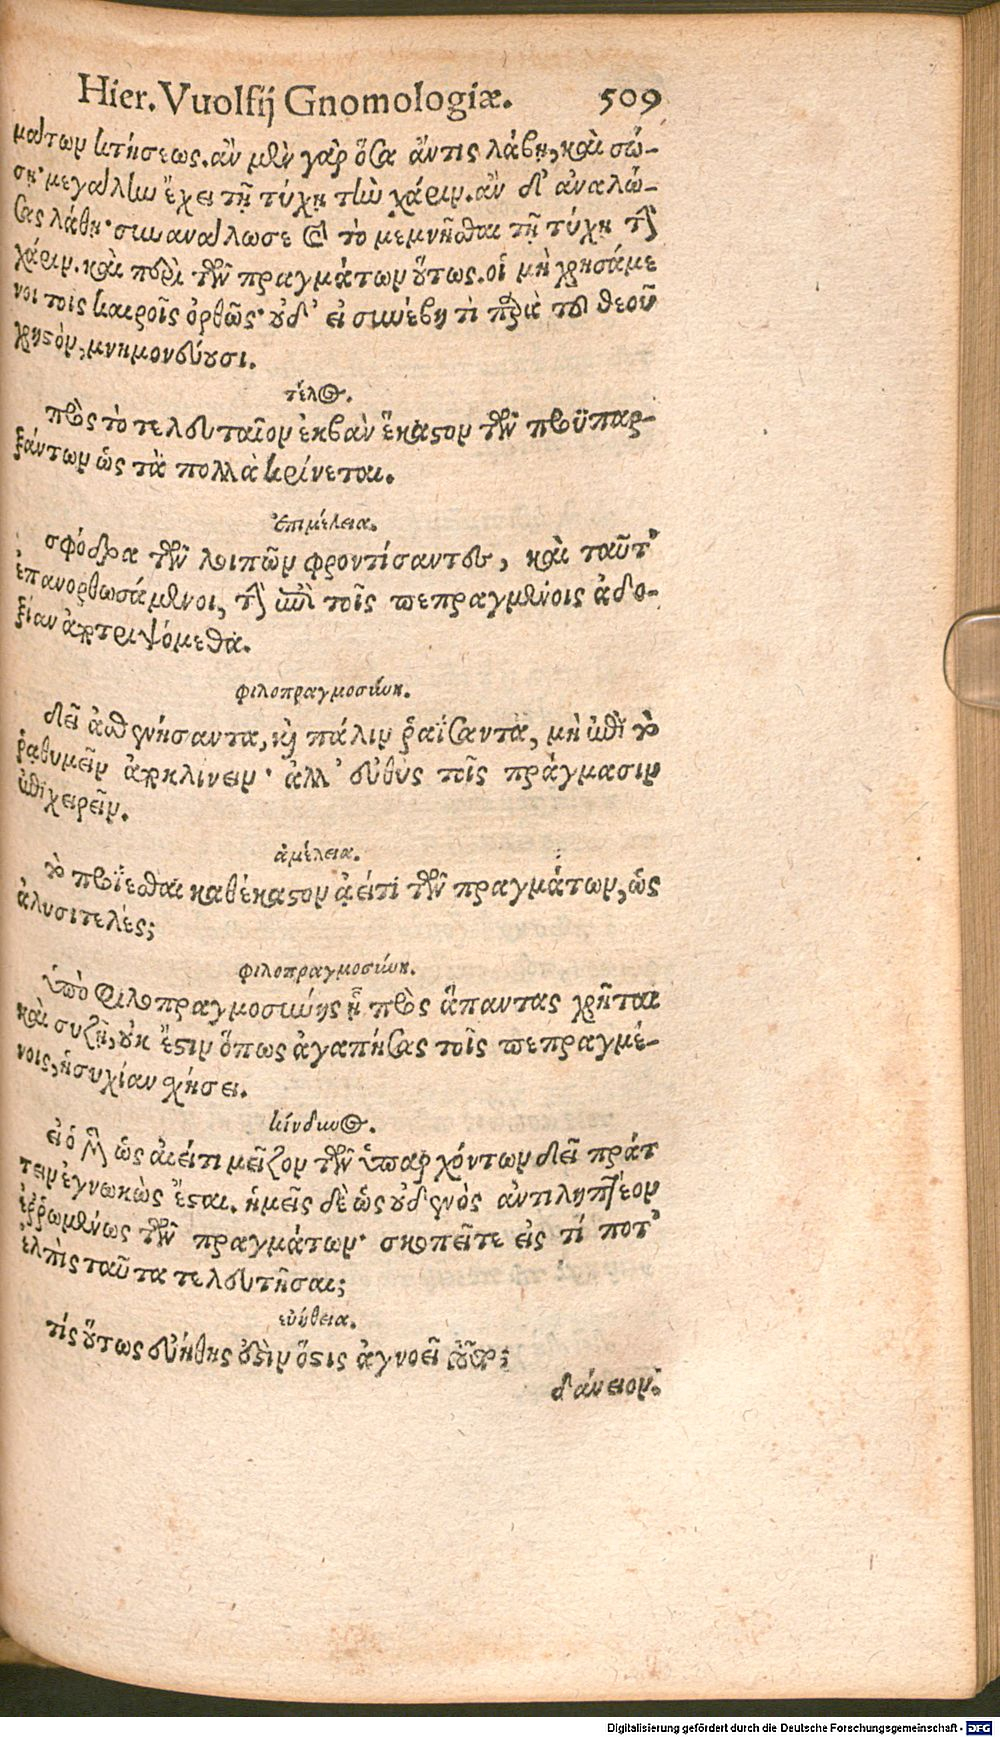 Hier. Vuolfij Gnomologiæ. 509
μάτων κτήσεως. ἂν μὲν γὰρ ὅσα ἄντις λάβῃ, καὶ σώ-
σῃ· μεγάλλην ἔχει τῇ τύχῃ τὴν χάριν. ἂν δ' ἀναλώ-
σας λάθῃ· συνανάλωσε καὶ τὸ μεμνῆσθαι τῇ τύχῃ τὴν
χάριν. καὶ περὶ τῶν πραγμάτων οὕτως. οἱ μὴ χρησάμε
νοι τοῖς καιροῖς ὀρθῶς· οὐδ' εἰ συνέβη τὶ παρὰ τοῦ θεοῦ
χρηστὸν, μνημονεύουσι.
τέλος.
πρὸς τὸ τελευταῖον ἐκβὰν ἕκαστον τῶν προϋπαρ-
ξάντων ὡς τὰ πολλὰ κρίνεται.
Ἐπιμέλεια.
σφόδρα τῶν λοιπῶν φροντίσαντες, καὶ ταῦτ'
ἐπανορθωσάμενοι, τὴν ἐπὶ τοῖς πεπραγμένοις ἀδο-
ξίαν ἀποτριψόμεθα.
φιλοπραγμοσύνη.
δεῖ ἀσθενήσαντα, καὶ πάλιν ῥαΐσαντα, μὴ ἐπὶ τὸ
ῥᾳθυμεῖν ἀποκλίνειν· ἀλλ' εὐθὺς τοῖς πράγμασιν
ἐπιχειρεῖν.
ἀμέλεια.
τὸ προΐεσθαι καθέκαστον ἀείτι τῶν πραγμάτων, ὡς
ἀλυσιτελὲς;
φιλοπραγμοσύνη.
ὑπὸ φιλοπραγμοσύνης ᾗ πρὸς ἅπαντας χρῆται
καὶ συζῇ, οὐκ ἔστιν ὅπως ἀγαπήσας τοῖς πεπραγμέ-
νοις, ἡσυχίαν σχήσει.
κίνδυνος.
εἰ ὁ μὲν ὡς ἀείτι μεῖζον τῶν ὑπαρχόντων δεῖ πράτ
τειν ἐγνωκὼς ἔσται. ἡμεῖς δὲ ὡς οὐδενὸς ἀντιληπτέον
ἐῤῥωμένως τῶν πραγμάτων· σκοπεῖτε εἰς τί ποτ'
ἐλπὶς ταῦτα τελευτῆσαι;
εὐήθεια.
τίς οὕτως εὐήθης ἐστὶν ὅστις ἀγνοεῖ
δάνειον.